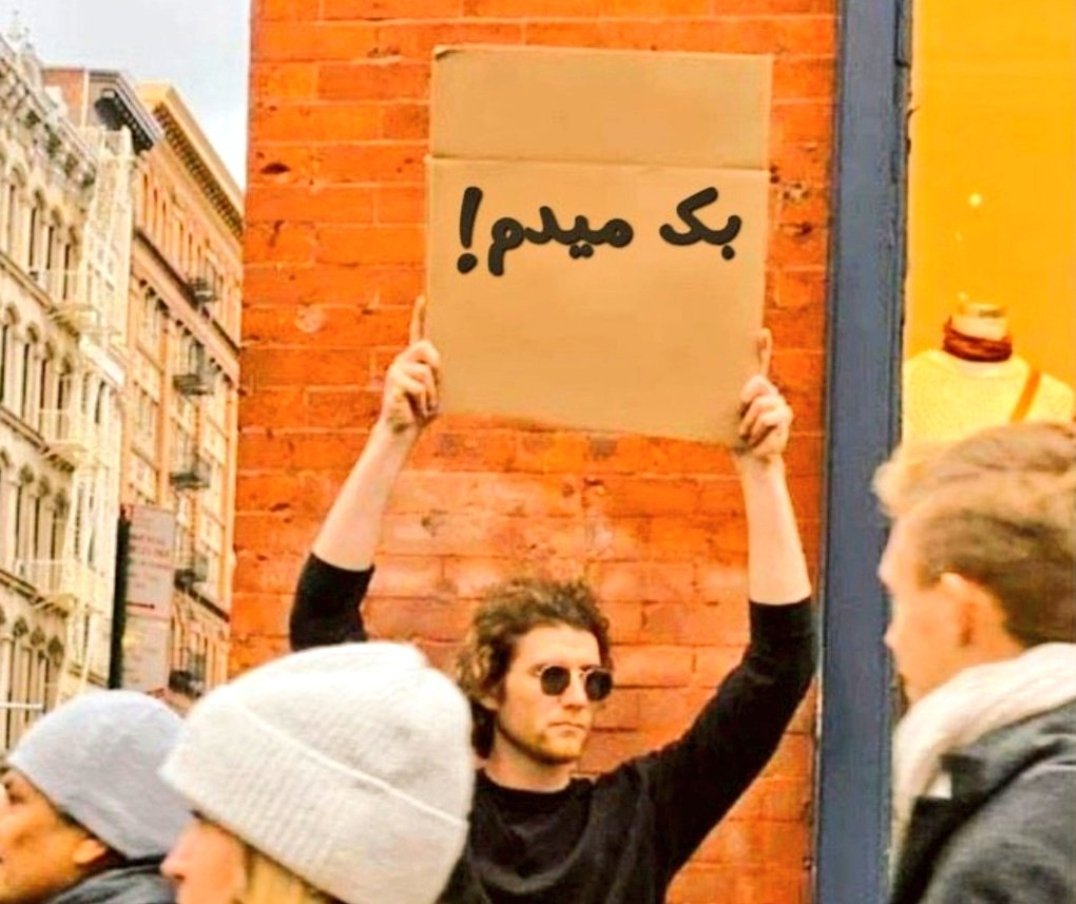 بک میدم!